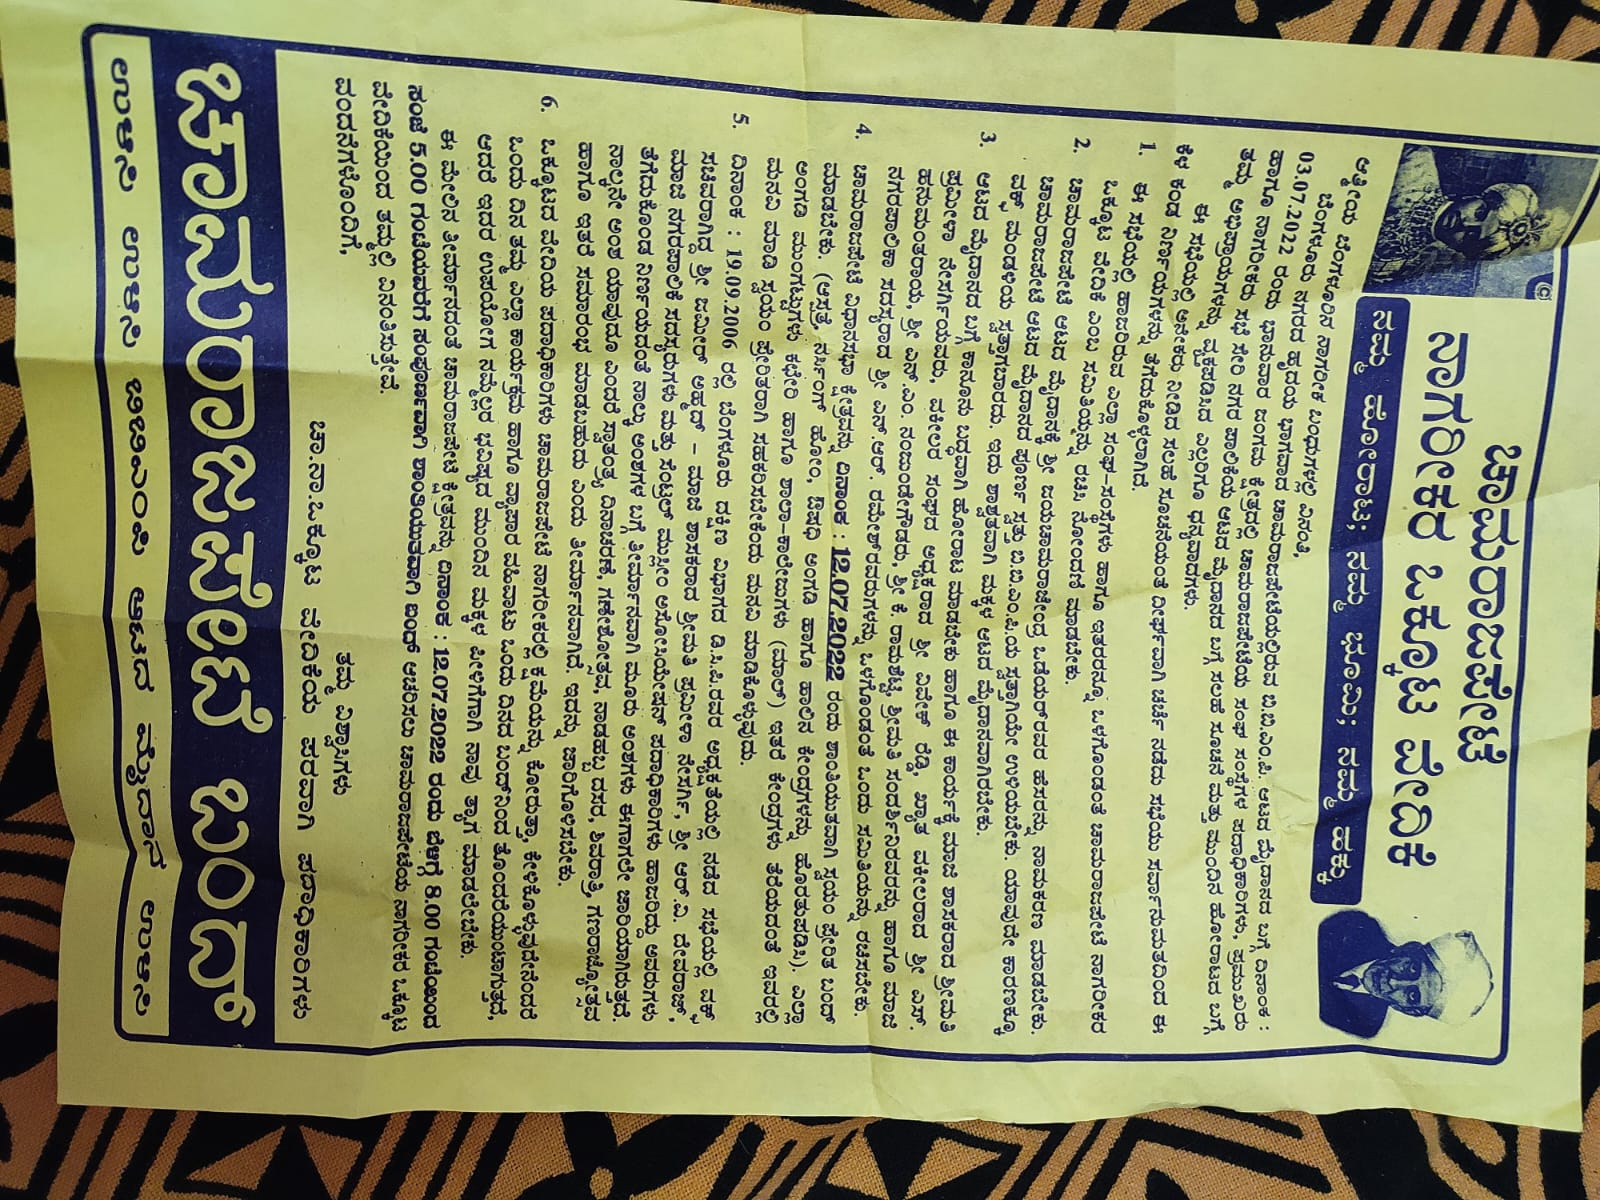 ಚಾಮರಾಜಪೇಟೆ
ನಾಗರೀಕರ ಒಕ್ಕೂಟ ವೇದಿಕೆ
ನಮ್ಮ ಹೋರಾಟ; ನಮ್ಮ ಭೂಮಿ; ನಮ್ಮ ಹಕ್ಕು
ಆತ್ಮೀಯ ಬೆಂಗಳೂರಿನ ನಾಗರೀಕ ಬಂಧುಗಳಲ್ಲಿ ವಿನಂತಿ,
ಬೆಂಗಳೂರು ನಗರದ ಹೃದಯ ಭಾಗವಾದ ಚಾಮರಾಜಪೇಟೆಯಲ್ಲಿರುವ ಬಿ.ಬಿ.ಎಂ.ಪಿ. ಆಟದ ಮೈದಾನದ ಬಗ್ಗೆ ದಿನಾಂಕ :
03.07.2022 ರಂದು ಭಾನುವಾರ ಜಂಗಮ ಕ್ಷೇತ್ರದಲ್ಲಿ ಚಾಮರಾಜಪೇಟೆಯ ಸಂಘ ಸಂಸ್ಥೆಗಳ ಪದಾಧಿಕಾರಿಗಳು, ಪ್ರಮುಖರು
ಹಾಗೂ ನಾಗರೀಕರು ಸಭೆ ಸೇರಿ ನಗರ ಪಾಲಿಕೆಯ ಆಟದ ಮೈದಾನದ ಬಗ್ಗೆ ಸಲಹೆ ಸೂಚನೆ ಮತ್ತು ಮುಂದಿನ ಹೋರಾಟದ ಬಗ್ಗೆ
ತಮ್ಮ ಅಭಿಪ್ರಾಯಗಳನ್ನು ವ್ಯಕ್ತಪಡಿಸಿದ ಎಲ್ಲರಿಗೂ ಧನ್ಯವಾದಗಳು.
ಈ ಸಭೆಯಲ್ಲಿ ಅನೇಕರು ನೀಡಿದ ಸಲಹೆ ಸೂಚನೆಯಂತೆ ದೀರ್ಘವಾಗಿ ಚರ್ಚೆ ನಡೆದು ಸಭೆಯು ಸರ್ವಾನುಮತದಿಂದ ಈ
ಕೆಳ ಕಂಡ ನಿರ್ಣಯಗಳನ್ನು ತೆಗೆದುಕೊಳ್ಳಲಾಗಿದೆ.
1. ಈ ಸಭೆಯಲ್ಲಿ ಹಾಜರಿರುವ ಎಲ್ಲಾ ಸಂಘ-ಸಂಸ್ಥೆಗಳು ಹಾಗೂ ಇತರರನ್ನೂ ಒಳಗೊಂಡಂತೆ ಚಾಮರಾಜಪೇಟೆ ನಾಗರೀಕರ
ಒಕ್ಕೂಟ ವೇದಿಕೆ ಎಂಬ ಸಮಿತಿಯನ್ನು ರಚಿಸಿ ನೋಂದಣಿ ಮಾಡಬೇಕು.
2. ಚಾಮರಾಜಪೇಟೆ ಆಟದ ಮೈದಾನಕ್ಕೆ ಶ್ರೀ ಜಯಚಾಮರಾಜೇಂದ್ರ ಒಡೆಯರ್‌ರವರ ಹೆಸರನ್ನು ನಾಮಕರಣ ಮಾಡಬೇಕು.
ಚಾಮರಾಜಪೇಟೆ ಆಟದ ಮೈದಾನದ ಪೂರ್ಣ ಸ್ವತ್ತು ಬಿ.ಬಿ.ಎಂ.ಪಿ.ಯ ಸ್ವತ್ತಾಗಿಯೇ ಉಳಿಯಬೇಕು. ಯಾವುದೇ ಕಾರಣಕ್ಕೂ
ವಕ್ಫ್ ಮಂಡಳಿಯ ಸ್ವತ್ತಾಗಬಾರದು. ಇದು ಶಾಶ್ವತವಾಗಿ ಮಕ್ಕಳ ಆಟದ ಮೈದಾನವಾಗಿರಬೇಕು.
3. ಆಟದ ಮೈದಾನದ ಬಗ್ಗೆ ಕಾನೂನು ಬದ್ಧವಾಗಿ ಹೋರಾಟ ಮಾಡಬೇಕು ಹಾಗೂ ಈ ಕಾರ್ಯಕ್ಕೆ ಮಾಜಿ ಶಾಸಕರಾದ ಶ್ರೀಮತಿ
ಪ್ರಮೀಳಾ ನೇಸರ್ಗಿಯವರು, ವಕೀಲರ ಸಂಘದ ಅಧ್ಯಕ್ಷರಾದ ಶ್ರೀ ವಿವೇಕ್ ರೆಡ್ಡಿ, ಖ್ಯಾತ ವಕೀಲರಾದ ಶ್ರೀ ಎಸ್.
ಹನುಮಂತರಾಯ, ಶ್ರೀ ಎನ್.ಎಂ. ನಂಜುಂಡೇಗೌಡರು, ಶ್ರೀ ಕೆ. ರಾಮಶೆಟ್ಟಿ, ಶ್ರೀಮತಿ ಸಂದರ್ಶಿನಿರವರನ್ನು ಹಾಗೂ ಮಾಜಿ
ನಗರಪಾಲಿಕಾ ಸದಸ್ಯರಾದ ಶ್ರೀ ಎನ್.ಆರ್. ರಮೇಶ್‌ರವರುಗಳನ್ನು ಒಳಗೊಂಡಂತೆ ಒಂದು ಸಮಿತಿಯನ್ನು ರಚಿಸಬೇಕು.
4. ಚಾಮರಾಜಪೇಟೆ ವಿಧಾನಸಭಾ ಕ್ಷೇತ್ರವನ್ನು ದಿನಾಂಕ : 12.07.2022 ರಂದು ಶಾಂತಿಯುತವಾಗಿ ಸ್ವಯಂ ಪ್ರೇರಿತ ಬಂದ್
ಮಾಡಬೇಕು. (ಆಸ್ಪತ್ರೆ, ನರ್ಸಿಂಗ್ ಹೋಂ, ಔಷಧಿ ಅಂಗಡಿ ಹಾಗೂ ಹಾಲಿನ ಕೇಂದ್ರಗಳನ್ನು ಹೊರತುಪಡಿಸಿ). ಎಲ್ಲಾ
ಅಂಗಡಿ ಮುಂಗಟ್ಟುಗಳು ಕಛೇರಿ ಹಾಗೂ ಶಾಲಾ-ಕಾಲೇಜುಗಳು (ಮಾಲ್) ಇತರೆ ಕೇಂದ್ರಗಳು ತೆರೆಯದಂತೆ ಇವರಲ್ಲಿ
ಮನವಿ ಮಾಡಿ ಸ್ವಯಂ ಪ್ರೇರಿತರಾಗಿ ಸಹಕರಿಸಬೇಕೆಂದು ಮನವಿ ಮಾಡಿಕೊಳ್ಳುವುದು.
5. ದಿನಾಂಕ : 19.09.2006 ರಲ್ಲಿ ಬೆಂಗಳೂರು ದಕ್ಷಿಣ ವಿಭಾಗದ ಡಿ.ಸಿ.ಪಿ.ರವರ ಅಧ್ಯಕ್ಷತೆಯಲ್ಲಿ ನಡೆದ ಸಭೆಯಲ್ಲಿ ವಕ್ಫ್
ಸಚಿವರಾಗಿದ್ದ ಶ್ರೀ ಜಮೀರ್ ಅಹ್ಮದ್ – ಮಾಜಿ ಶಾಸಕರಾದ ಶ್ರೀಮತಿ ಪ್ರಮೀಳಾ ನೇಸರ್ಗಿ, ಶ್ರೀ ಆರ್.ವಿ. ದೇವರಾಜ್,
ಮಾಜಿ ನಗರಪಾಲಿಕೆ ಸದಸ್ಯರುಗಳು ಮತ್ತು ಸೆಂಟ್ರಲ್ ಮುಸ್ಲೀಂ ಅಸೋಸಿಯೇಷನ್ ಪದಾಧಿಕಾರಿಗಳು ಹಾಜರಿದ್ದು ಅವರುಗಳು
ತೆಗೆದುಕೊಂಡ ನಿರ್ಣಯದಂತೆ ನಾಲ್ಕು ಅಂಶಗಳ ಬಗ್ಗೆ ತೀರ್ಮಾನವಾಗಿ ಮೂರು ಅಂಶಗಳು ಈಗಾಗಲೇ ಜಾರಿಯಾಗಿರುತ್ತದೆ.
ನಾಲ್ಕನೇ ಅಂಶ ಯಾವುದೂ ಎಂದರೆ ಸ್ವಾತಂತ್ರ್ಯ ದಿನಾಚರಣೆ, ಗಣೇಶೋತ್ಸವ, ನಾಡಹಬ್ಬ ದಸರ, ಶಿವರಾತ್ರಿ, ಗಣರಾಜ್ಯೋತ್ಸವ
ಹಾಗೂ ಇತರೆ ಸಮಾರಂಭ ಮಾಡಬಹುದು ಎಂದು ತೀರ್ಮಾನವಾಗಿದೆ. ಇದನ್ನು ಜಾರಿಗೊಳಿಸಬೇಕು.
6. ಒಕ್ಕೂಟದ ವೇದಿಯ ಪದಾಧಿಕಾರಿಗಳು ಚಾಮರಾಜಪೇಟೆ ನಾಗರೀಕರಲ್ಲಿ ಕ್ಷಮೆಯನ್ನು ಕೋರುತ್ತಾ, ಕೇಳಿಕೊಳ್ಳುವುದೇನೆಂದರೆ
ಒಂದು ದಿನ ತಮ್ಮ ಎಲ್ಲಾ ಕಾರ್ಯಕ್ರಮ ಹಾಗೂ ವ್ಯಾಪಾರ ವಹಿವಾಟು ಒಂದು ದಿನದ ಬಂದ್‌ನಿಂದ ತೊಂದರೆಯುಂಟಾಗುತ್ತದೆ,
ಆದರೆ ಇದರ ಉಪಯೋಗ ನಮ್ಮೆಲ್ಲರ ಭವಿಷ್ಯದ ಮುಂದಿನ ಮಕ್ಕಳ ಪೀಳಿಗೆಗಾಗಿ ನಾವು ತ್ಯಾಗ ಮಾಡಲೇಬೇಕು.
ಈ ಮೇಲಿನ ತೀರ್ಮಾನದಂತೆ ಚಾಮರಾಜಪೇಟೆ ಕ್ಷೇತ್ರವನ್ನು ದಿನಾಂಕ : 12.07.2022 ರಂದು ಬೆಳಿಗ್ಗೆ 8.00 ಗಂಟೆಯಿಂದ
ಸಂಜೆ 5.00 ಗಂಟೆಯವರೆಗೆ ಸಂಪೂರ್ಣವಾಗಿ ಶಾಂತಿಯುತವಾಗಿ ಬಂದ್ ಆಚರಿಸಲು ಚಾಮರಾಜಪೇಟೆಯ ನಾಗರೀಕರ ಒಕ್ಕೂಟ
ವೇದಿಕೆಯಿಂದ ತಮ್ಮಲ್ಲಿ ವಿನಂತಿಸುತ್ತೇವೆ.
ವಂದನೆಗಳೊಂದಿಗೆ,
ತಮ್ಮ ವಿಶ್ವಾಸಿಗಳು
ಚಾ.ನಾ.ಒಕ್ಕೂಟ ವೇದಿಕೆಯ ಪರವಾಗಿ ಪದಾಧಿಕಾರಿಗಳು
ಚಾಮರಾಜಪೇಟೆ ಬಂದ್
ಉಳಿಸಿ ಉಳಿಸಿ ಬಿಬಿಎಂಪಿ ಆಟದ ಮೈದಾನ ಉಳಿಸಿ